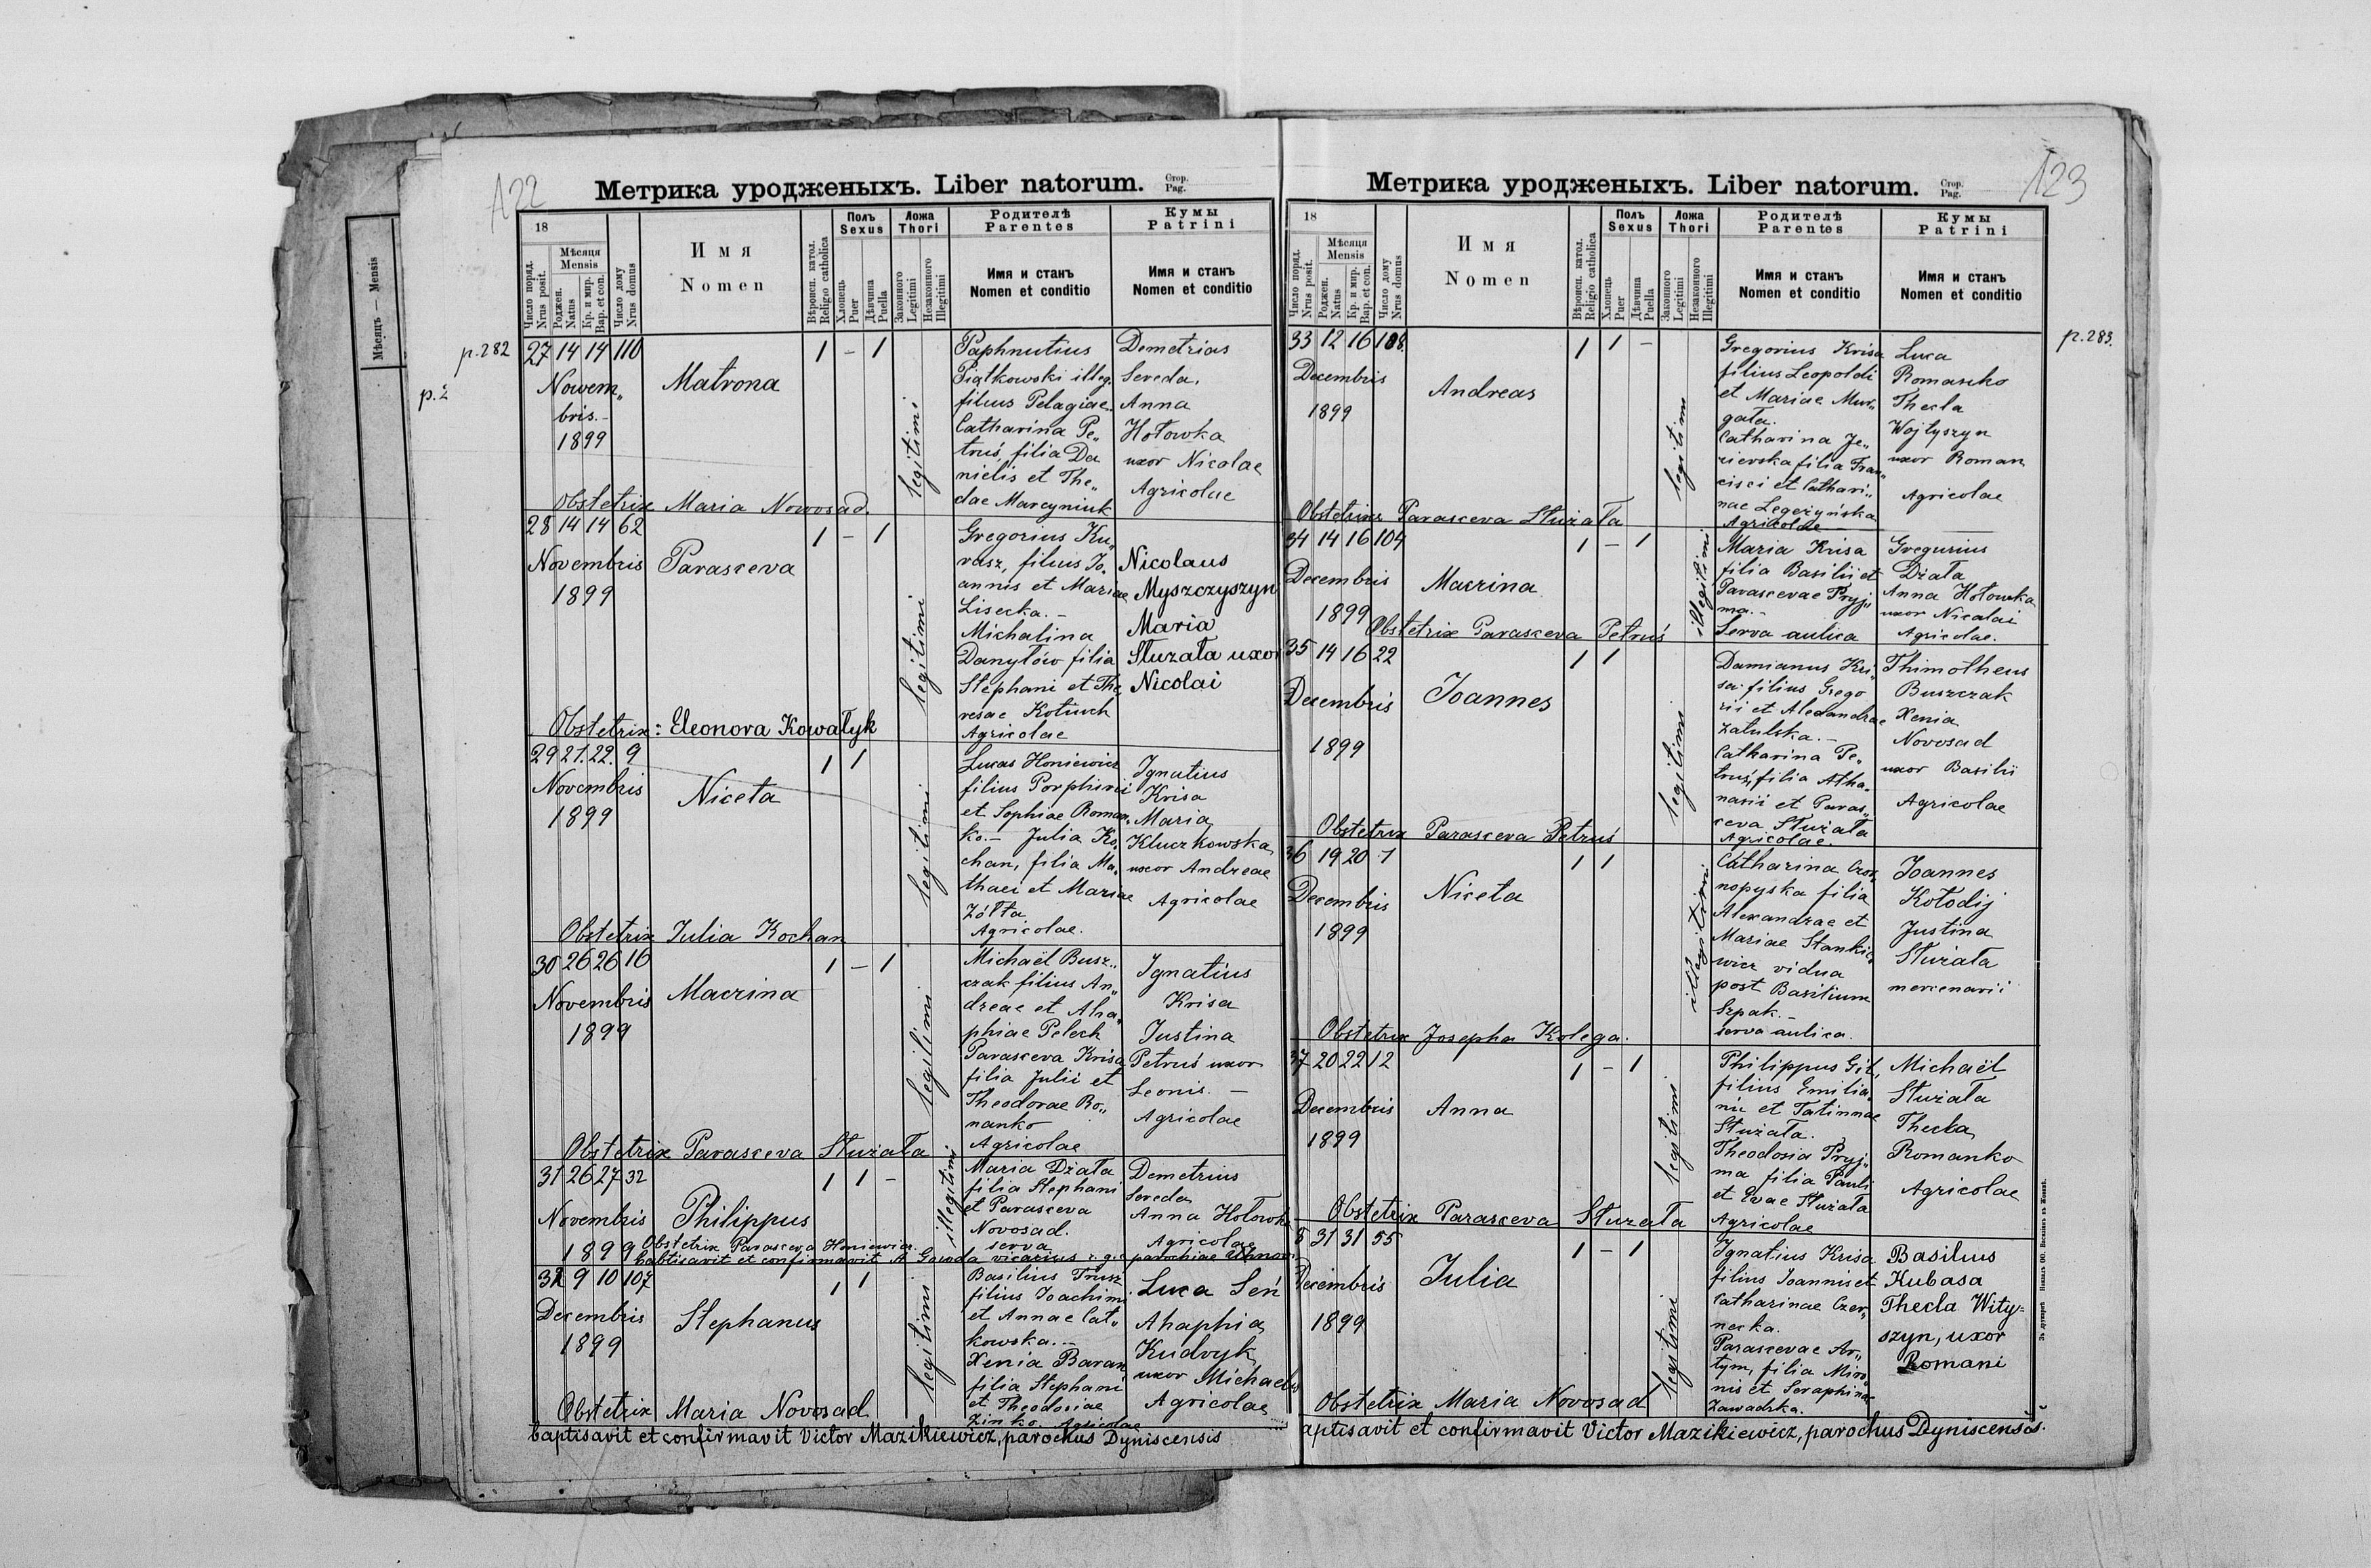 122
Метрика уродженыхъ. Liber natorum. Стор. Pag.
18
Число поряд. Nrus posit.
Мѣсяця Mensis
Роджен. Natus
Кр. и мир. Bap. et con.
Число дому Nrus domus
Имя
Nomen
Вѣроисп. катол. Religio catholica
Полъ Sexus
Хлопець Puer
Дѣвчина Puella
Ложа Thori
Законного Legitimi
Незаконного Illegitimi
Родителѣ Parentes
Имя и станъ
Nomen et conditio
Кумы Patrini
Имя и станъ
Nomen et conditio
Мѣсяць — Mensis
p. 282
27 14 14 110
Novem„
bris.-
1899
Matrona
1 - 1
legitimi
Paphnutius
Piątkowski illeg.
filius Pelagiae.
Catharina Pe„
truś, filia Da
nielis et The„
clae Marcyniuk
Demetrius
Sereda.
Anna
Hołowka
uxor Nicolae
Agricolae
Obstetrix Maria Novosad.
28 14 14 62
Novembris
1899
Parasceva
1 - 1
legitimi
Gregorius Ku„
rasz, filius Jo„
annis et Mariae
Lisecka.-
Michalina
Danyłów filia
Stephani et The„
resae Kotiuch
Agricolae
Nicolaus
Myszczyszyn
Maria
Stuzata uxor
Nicolai
Obstetrix: Eleonora Kowałyk
29 21. 22. 9
Novembris
1899
Niceta
1 1
legitimi
Lucas Honiewicz
filius Porphirii
et Sophiae Roman„
ko.- Julia Ko„
chan, filia Ma„
thaei et Mariae
Żółta
Agricolae.
Ignatius
Krisa
Maria
Kluczkowska
uxor Andreae
Agricolae
Obstetrix Julia Kochan
30 26 26 16
Novembris
1899
Macrina
1 - 1
legitimi
Michaël Busz„
czak filius An„
dreae et Aha„
phiae Pelech
Parasceva Krisa
filia Julii et
Theodorae Ro„
manko
Agricolae
Ignatius
Krisa
Justina
Petruś uxor
Leonis.-
Agricolae
Obstetrix Parasceva Stuzata
31 26 27 32
Novembris
1899
Philippus
1 1 -
illegitimi
Maria Dżała
filia Stephani
et Parasceva
Novosad.
serva
Demetrius
Sereda
Anna Hołowka
Agricolae
Obstetrix Parasceva Honiewicz
babtisavit et confirmavit vicarius r. g. c. parochiae
32 9 10 107
Decembris
1899
Stephanus
1 1
legitimi
Basilius Trusz
filius Joachimi
et Annae Cat„
kowska.-
Xenia Baran
filia Stephani
et Theodosiae
Zinko. Agricolae
Luca Seń
Ahaphia
Kudryk
uxor Michaelis
Agricolae
Obstetrix Maria Novosad
baptisavit et confirmavit Victor Mazikiewicz, parochus Dyniscensis
123
Метрика уродженыхъ. Liber natorum. Стор. Pag.
18
Число поряд. Nrus posit.
Мѣсяця Mensis
Роджен. Natus
Кр. и мир. Bap. et con.
Число дому Nrus domus
Имя
Nomen
Вѣроисп. катол. Religio catholica
Полъ Sexus
Хлопець Puer
Дѣвчина Puella
Ложа Thori
Законного Legitimi
Незаконного Illegitimi
Родителѣ Parentes
Имя и станъ
Nomen et conditio
Кумы Patrini
Имя и станъ
Nomen et conditio
p. 283.
33 12 16 108.
Decembris
1899
Andreas
1 1 -
legitimi
Gregorius Krisa
filius Leopoldi
et Mariae Mur„
gała.
Catharina Je„
zierska filia Fran„
cisci et Cathari„
nae Legeżyńska
Agricolae
Luca
Romanko
Thecla
Wojtyszyn
uxor Roman
Agricolae
Obstetrix Parasceva Stuzata
34 14 16 104
Decembris
1899
Macrina
1 - 1
illegitimi
Maria Krisa
filia Basilii et
Parascevae Pryj„
ma.-
Serva aulica
Gregorius
Dżała
Anna Hołowka
uxor Nicolai
Agricolae.
Obstetrix Parasceva Petruś
35 14 16 22
Decembris
1899
Joannes
1 1
legitimi
Damianus Kri„
sa filius Grego
rii et Alexandrae
Zatulska.-
Catharina Pe„
truś, filia Atha„
nasii et Paras„
ceva Stuzata
Agricolae.
Thimotheus
Buszczak
Xenia
Novosad
uxor Basilii
Agricolae
Obstetrix Parasceva Petruś
36 19 20 1
Decembris
1899
Niceta
1 1
illegitimi
Catharina Czor„
nopyska filia
Alexandrae et
Mariae Stankie„
wicz vidua
post Basilium
Szpak.-
serva aulica.
Joannes
Kołodij
Justina
Stuzata
mercenarii
Obstetrix Josepha Kolega.
37 20 22 12
Decembris
1899
Anna
1 - 1
legitimi
Philippus Gil,
filius Emilia„
ni et Tatinnae
Stuzata.
Theodosia Pryj„
ma filia Pauli
et Evae Stuzata
Agricolae
Michaël
Stuzata
Thecla
Romanko
Agricolae
Obstetrix Parasceva Stuzata
31 31 55
Decembris
1899
Julia
1 - 1
legitimi
Ignatius Krisa
filius Joannis et
Catharinae Czer„
necka.
Parascevae Ar„
tym, filia Miro„
nis et Seraphinae
Zawadzka.
Basilius
Kubasa
Thecla Wity=
szyn, uxor
Romani
Obstetrix Maria Novosad
aptisavit et confirmavit Victor Mazikiewicz, parochus Dyniscensis.